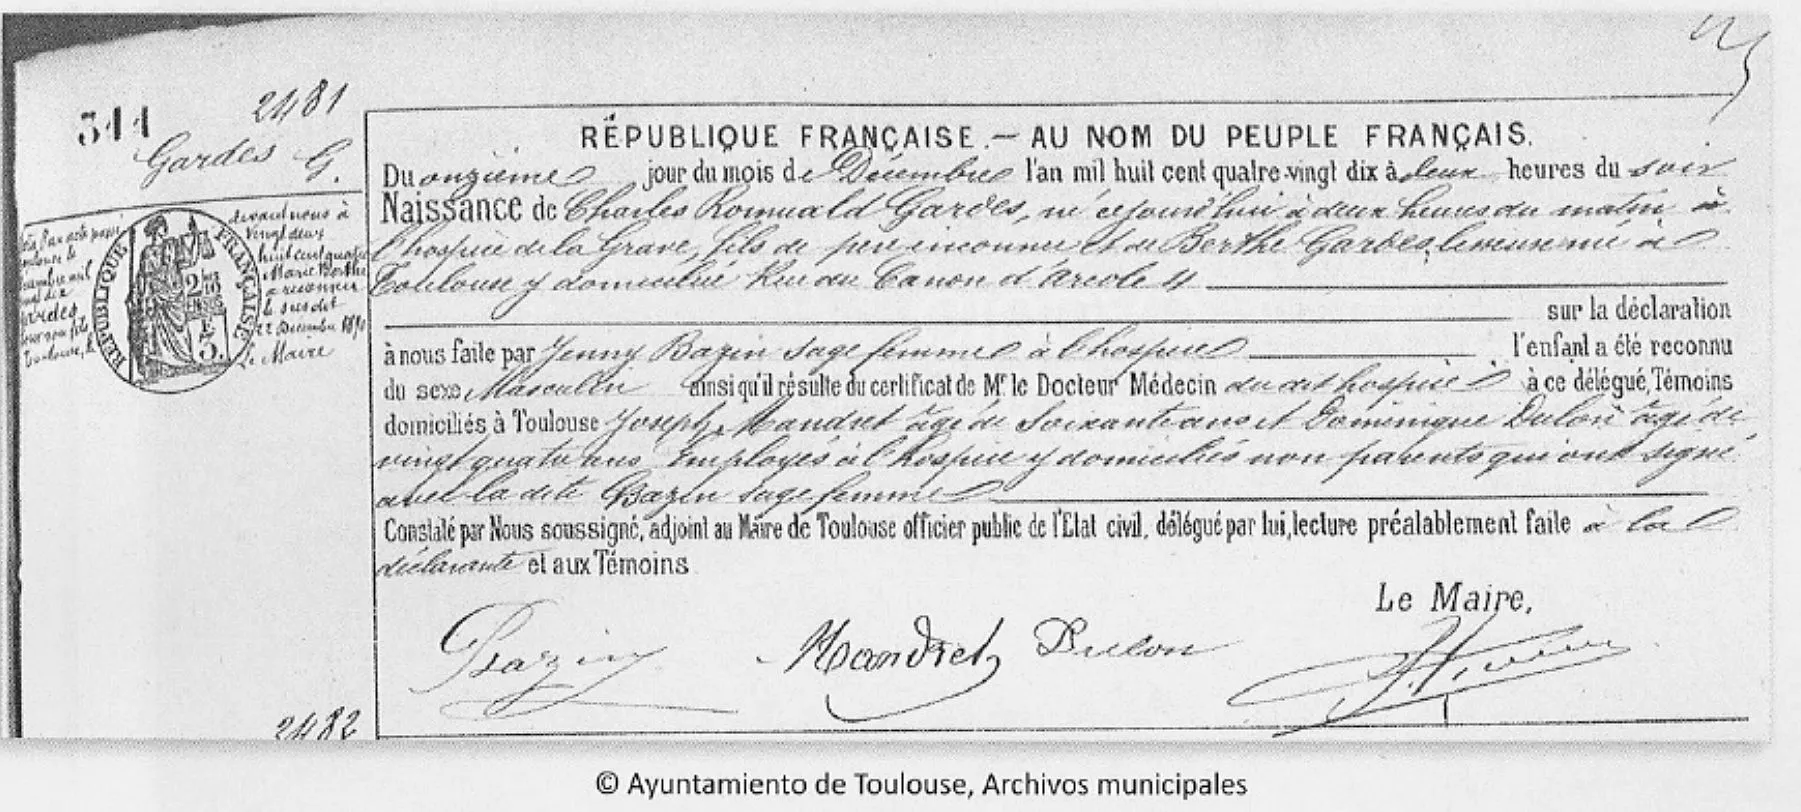 2481
344
Gardes G.
RÉPUBLIQUE FRANÇAISE. — AU NOM DU PEUPLE FRANÇAIS.
Du onzième jour du mois de Décembre l'an mil huit cent quatre-vingt dix à deux heures du soir
Naissance de Charles Romuald Gardes, né cejourd'hui à deux heures du matin à
l'hospice de la Grave, fils de père inconnu et de Berthe Gardes, née à
Toulouse y domiciliée Rue du Canon d'arcole 4
sur la déclaration
à nous faite par Jenny Bazin sage femme à l'hospice l'enfant a été reconnu
du sexe Masculin ainsi qu'il résulte du certificat de Mr. le Docteur Médecin du dit hospice à ce délégué, Témoins
domiciliés à Toulouse Joseph Mandret âgé de Soixante ans et Dominique Dulon âgé de
vingt quatre ans Employés à l'hospice y domiciliés non parents qui ont signé
avec la dite Bazin sage femme
Constaté par Nous soussigné, adjoint au Maire de Toulouse officier public de l'Etat civil, délégué par lui, lecture préalablement faite à la
déclarante et aux Témoins
Le Maire,
Bazin Mandret Dulon
devant nous à
vingt deux
huit cent quatre
Marie Berthe
a reconnu
le susdit
22 Décembre 1890
Le Maire
RÉPUBLIQUE FRANÇAISE
2482
© Ayuntamiento de Toulouse, Archivos municipales